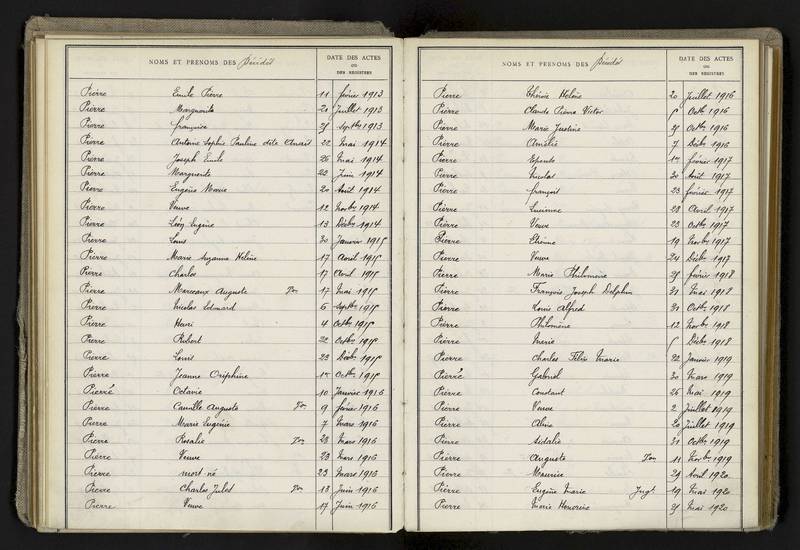 NOMS ET PRENOMS DES Décédés
DATE DES ACTES
OU
DES REGISTRES
Pierre Emile Pierre 11 février 1913
Pierre Marguerite 20 Juillet 1913
Pierre françoise 25 Septbre 1913
Pierre Antoine Sophie Pauline dite Anaïs 22 Mai 1914
Pierre Joseph Emile 26 Mai 1914
Pierre Marguerite 22 Juin 1914
Pierre Eugène Marie 20 Août 1914
Pierre Veuve 12 Novbre 1914
Pierre Léon Eugène 13 Décbre 1914
Pierre Louis 30 Janvier 1915
Pierre Marie Suzanne Hélène 17 Avril 1915
Pierre Charles 17 Avril 1915
Pierre Marceaux Auguste 17 Mai 1915
Pierre Nicolas Edouard 6 Septbre 1915
Pierre Henri 4 Octbre 1915
Pierre Robert 22 Octbre 1915
Pierre Louis 23 Décbre 1915
Pierre Jeanne 1er Octbre 1915
Pierré Octavie 10 Janvier 1916
Pierre Camille Auguste 9 février 1916
Pierre Marie Eugénie 7 Mars 1916
Pierre Rosalie 28 Mars 1916
Pierre Veuve 23 Mars 1916
Pierre mort né 23 Mars 1916
Pierre Charles Jules 13 Juin 1916
Pierre Veuve 17 Juin 1916
NOMS ET PRENOMS DES Décédés
DATE DES ACTES
OU
DES REGISTRES
Pierre Hélène 20 Juillet 1916
Pierre Claude Pierre Victor 5 Octbre 1916
Pierre Marie Justine 25 Octbre 1916
Pierre Amélie 7 Décbre 1916
Pierre 1er février 1917
Pierre Nicolas 30 Août 1917
Pierre françois 23 février 1917
Pierre Lucienne 28 Avril 1917
Pierre Veuve 23 Octbre 1917
Pierre Etienne 19 Novbre 1917
Pierre Veuve 24 Décbre 1917
Pierre Marie Philomène 25 février 1918
Pierre François Joseph Delphin 31 Mai 1918
Pierre Louis Alfred 31 Octbre 1918
Pierre Philomène 12 Novbre 1918
Pierre Marie 5 Décbre 1918
Pierre Charles Félix Marie 22 Janvier 1919
Pierré Gabriel 30 Mars 1919
Pierre Constant 26 Mai 1919
Pierre Veuve 2 Juillet 1919
Pierre Aline 20 Juillet 1919
Pierre Sidalie 31 Octbre 1919
Pierre Auguste 11 Novbre 1919
Pierre Maurice 29 Avril 1920
Pierre Eugène Marie Jugt 19 Mai 1920
Pierre Marie Honorine 25 Mai 1920